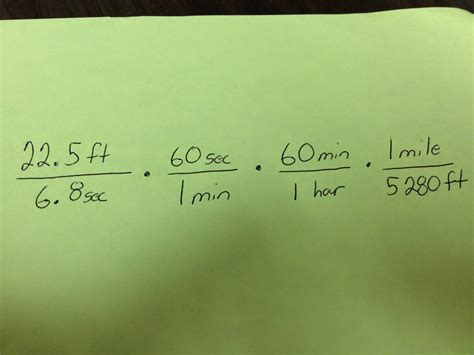 22.5 ft / 6.8 sec · 60 sec / 1 min · 60 min / 1 hour · 1 mile / 5280 ft